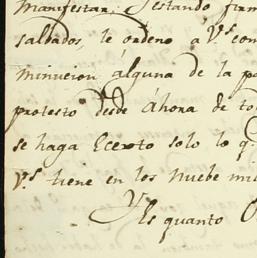 manifestar. Estando firm
salbados, le ordeno á V.s com
minucion álguna de la pa
protesto desde áhora de to
se haga Ecerto solo lo q.
V.s tiene en los Nuebe mil
Es quanto